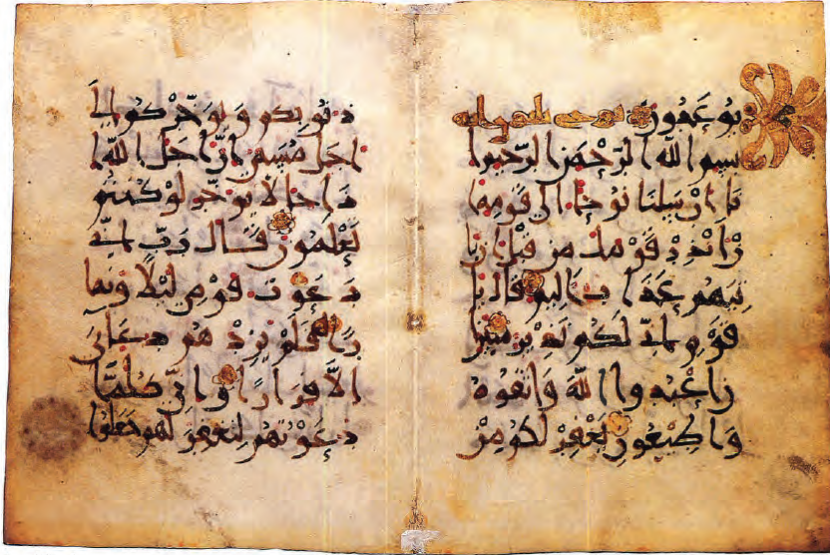 يوعدون نوح
بسم الله الرحمن الرحيم ا
نا ارسلنا نوحا الى قومه ا
ن انذر قومك من قبل ان يا
تيهم عذاب اليم قال يا
قوم اني لكم نذير مبين ا
ن اعبدوا الله واتقوه
واطيعون يغفر لكم من
ذنوبكم ويوخركم الى
اجل مسمى ان اجل الله ا
ذا جا لا يوخر لو كنتم
تعلمون قال رب اني
دعوت قومي ليلا ونها
را فلم يزدهم دعاي
الا فرارا واني كلما
دعوتهم لتغفر لهم جعلوا